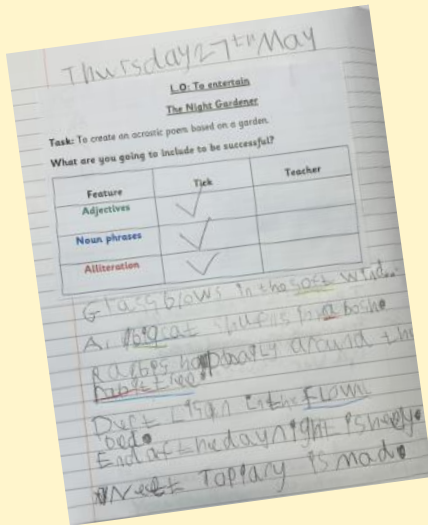 Thursday 27th May
L.O: To entertain
The Night Gardener
Task: To create an acrostic poem based on a garden.
What are you going to include to be successful?
Feature Tick Teacher
Adjectives ✓
Noun phrases ✓
Alliteration ✓
Grass blows in the soft wind.
A big cat in a bosh.
around the
tree.
in the
bed.
End af the day night is
Toppary is mad.